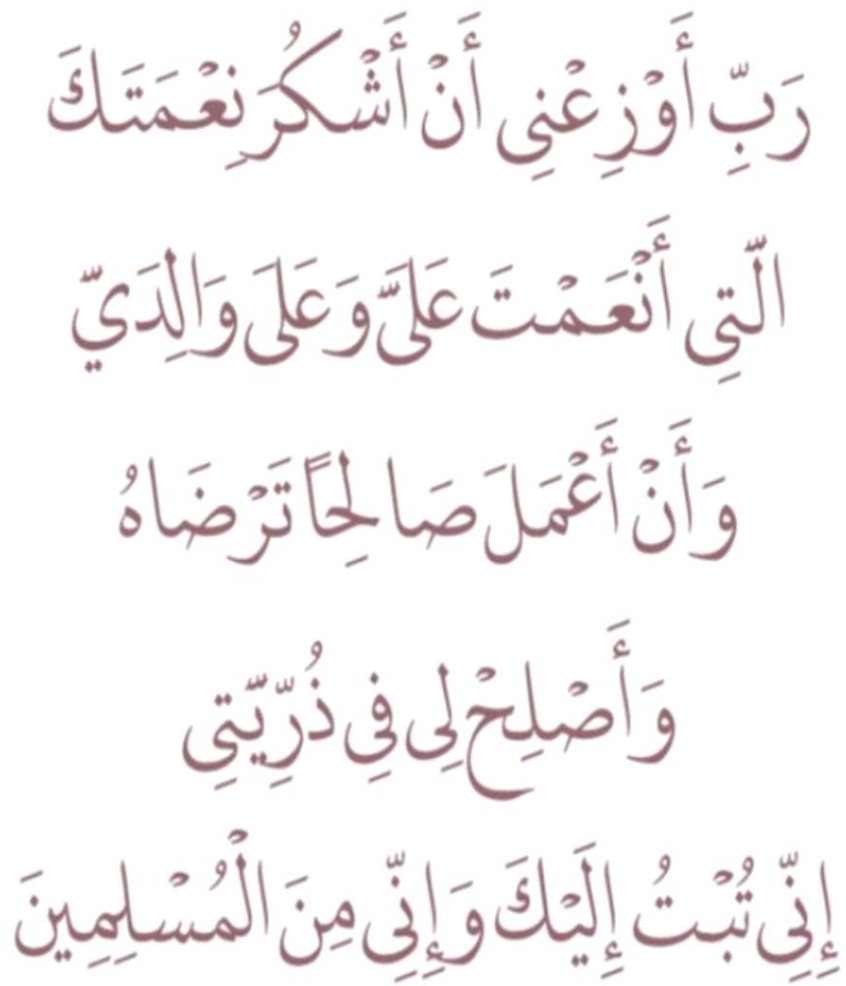 رَبِّ أَوْزِعْنِى أَنْ أَشْكُرَ نِعْمَتَكَ
الَّتِى أَنْعَمْتَ عَلَىَّ وَعَلَى وَالِدَيَّ
وَأَنْ أَعْمَلَ صَالِحًا تَرْضَاهُ
وَأَصْلِحْ لِى فِى ذُرِّيَّتِى
إِنِّى تُبْتُ إِلَيْكَ وَإِنِّى مِنَ الْمُسْلِمِينَ